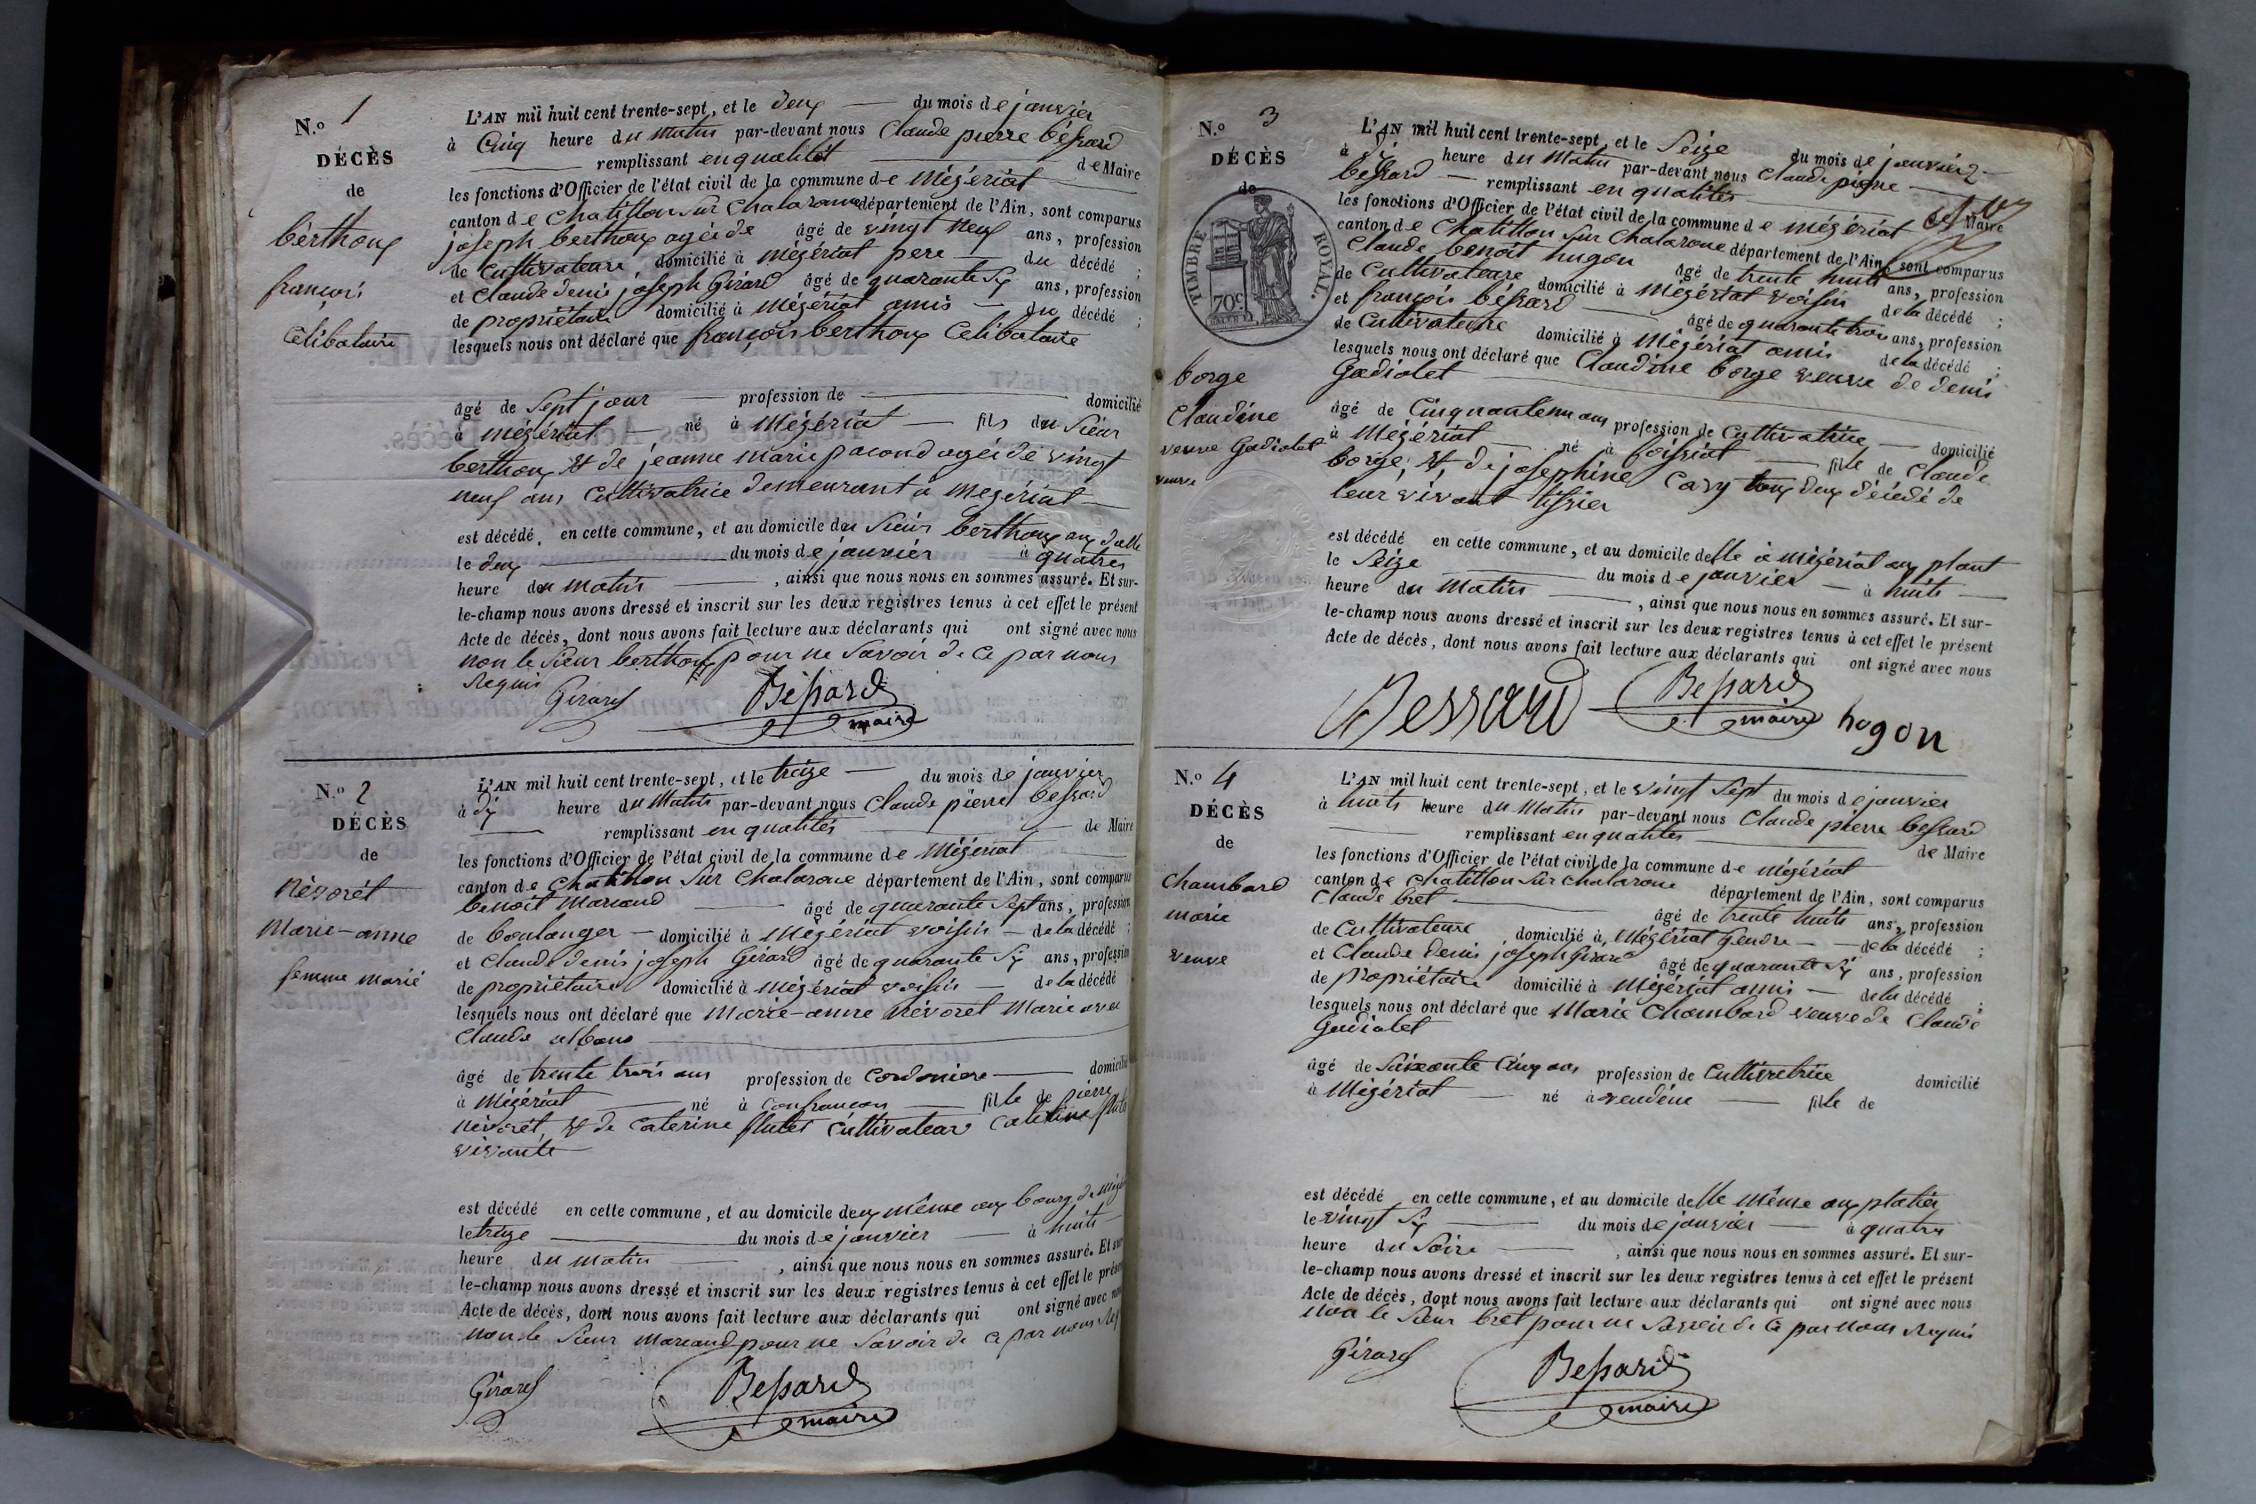 N.o 1
DÉCÈS
de
berthoux
françois
Célibataire
L'AN mil huit cent trente-sept, et le deux du mois de janvier
à Cinq heure du Matin par-devant nous Claude pierre béssard
remplissant en qualité de Maire
les fonctions d'Officier de l'état civil de la commune de Mézériat
canton de Chatillon sur Chalaronne département de l'Ain, sont comparus
joseph berthoux agéi de âgé de vingt neuf ans, profession
de Cultivateure, domicilié à Mézériat pere du décédé ;
et Claude denis joseph Girard âgé de quarante six ans, profession
de propriétaire domicilié à Mézériat amis du décédé ;
lesquels nous ont déclaré que françois berthoux Célibataire
âgé de Sept jour profession de domicilié
à Mézériat né à Mézériat fils du Sieur
berthoux & de jeanne marie pacond agéi de vingt
neuf ans Cultivatrice demeurant à Mézériat
est décédé en cette commune, et au domicile du Sieur berthoux
le deux du mois de janvier à quatres
heure du matin, ainsi que nous nous en sommes assuré. Et sur-
le-champ nous avons dressé et inscrit sur les deux registres tenus à cet effet le présent
Acte de décès, dont nous avons fait lecture aux déclarants qui ont signé avec nous
non le Sieur berthoux pour ne Savoir de ce par nous
Requis
Girard Béssard
maire
N.o 2
DÉCÈS
de
Névorét
Marie-anne
femme marié
L'AN mil huit cent trente-sept, et le treize du mois de janvier
à dix heure du Matin par-devant nous Claude pierre bessard
remplissant en qualités de Maire
les fonctions d'Officier de l'état civil de la commune de Mézériat
canton de Chatillon Sur Chalaronne département de l'Ain, sont comparus
benoit Mariaud âgé de quarante Sept ans, profession
de boulanger domicilié à Mézériat voisin de la décédé ;
et Claude denis joseph Girard âgé de quarante six ans, profession
de propriétaire domicilié à Mézériat voisin de la décédé
lesquels nous ont déclaré que Marie-anne Névorét Marie avec
Claude
âgé de trente trois ans profession de Cordoniere domicilié
à Mézériat né à Confrancon fille de pierre
névorét & de Caterine flutet Cultivateur Caterine
vivante
est décédé en cette commune, et au domicile d'eux même au bourg de
le treize du mois de janvier à huits
heure du matin, ainsi que nous nous en sommes assuré. Et sur-
le-champ nous avons dressé et inscrit sur les deux registres tenus à cet effet le présent
Acte de décès, dont nous avons fait lecture aux déclarants qui ont signé avec nous
non le Sieur Mariaud pour ne Savoir de ce par nous
Girard Bessard
maire
N.o 3
DÉCÈS
de
TIMBRE ROYAL.
70c
borge
Claudine
veuve Gadiolet
veuve
L'AN mil huit cent trente-sept, et le Seize du mois de janvier
à dix heure du Matin par-devant nous Claude pierre
bessard remplissant en qualités de Maire
les fonctions d'Officier de l'état civil de la commune de Mézériat
canton de Chatillon Sur Chalaronne département de l'Ain, sont comparus
Claude benoit hugon âgé de trente huit ans, profession
de Cultivateure domicilié à Mézériat voisin de la décédé ;
et françois béssard âgé de quarante trois ans, profession
de Cultivateure domicilié à Mézériat amis de la décédé ;
lesquels nous ont déclaré que Claudine borge veuve de denis
Gadiolet
âgé de Cinquante un ans profession de Cultivatrice domicilié
à Mézériat né à foissiat fille de Claude
borge, & de josephine Cavy tous deux décédé de
leur vivant tissier
est décédé en cette commune, et au domicile delle à Mézériat au plant
le Seize du mois de janvier à huits
heure du Matin, ainsi que nous nous en sommes assuré. Et sur-
le-champ nous avons dressé et inscrit sur les deux registres tenus à cet effet le présent
Acte de décès, dont nous avons fait lecture aux déclarants qui ont signé avec nous
Bessard Bessard
maire hogon
N.o 4
DÉCÈS
de
Chambard
marie
veuve
L'AN mil huit cent trente-sept, et le vingt Sept du mois de janvier
à huits heure du Matin par-devant nous Claude pierre bessard
remplissant en qualités de Maire
les fonctions d'Officier de l'état civil de la commune de Mézériat
canton de Chatillon Sur Chalaronne département de l'Ain, sont comparus
Claude bret âgé de trente huits ans, profession
de Cultivateure domicilié à Mézériat Gendre de la décédé ;
et Claude denis joseph Girard âgé de quarante six ans, profession
de Propriétaire domicilié à Mézériat amis de la décédé ;
lesquels nous ont déclaré que Marie Chambard veuve de Claude
Gadiolet
âgé de Soixante Cinq ans profession de Cultivetrice domicilié
à Mézériat né à vendéne fille de
est décédé en cette commune, et au domicile delle même au platier
le vingt six du mois de janvier à quatre
heure du Soire, ainsi que nous nous en sommes assuré. Et sur-
le-champ nous avons dressé et inscrit sur les deux registres tenus à cet effet le présent
Acte de décès, dont nous avons fait lecture aux déclarants qui ont signé avec nous
non le Sieur bret pour ne Savoir de ce par nous Requis
Girard Bessard
maire